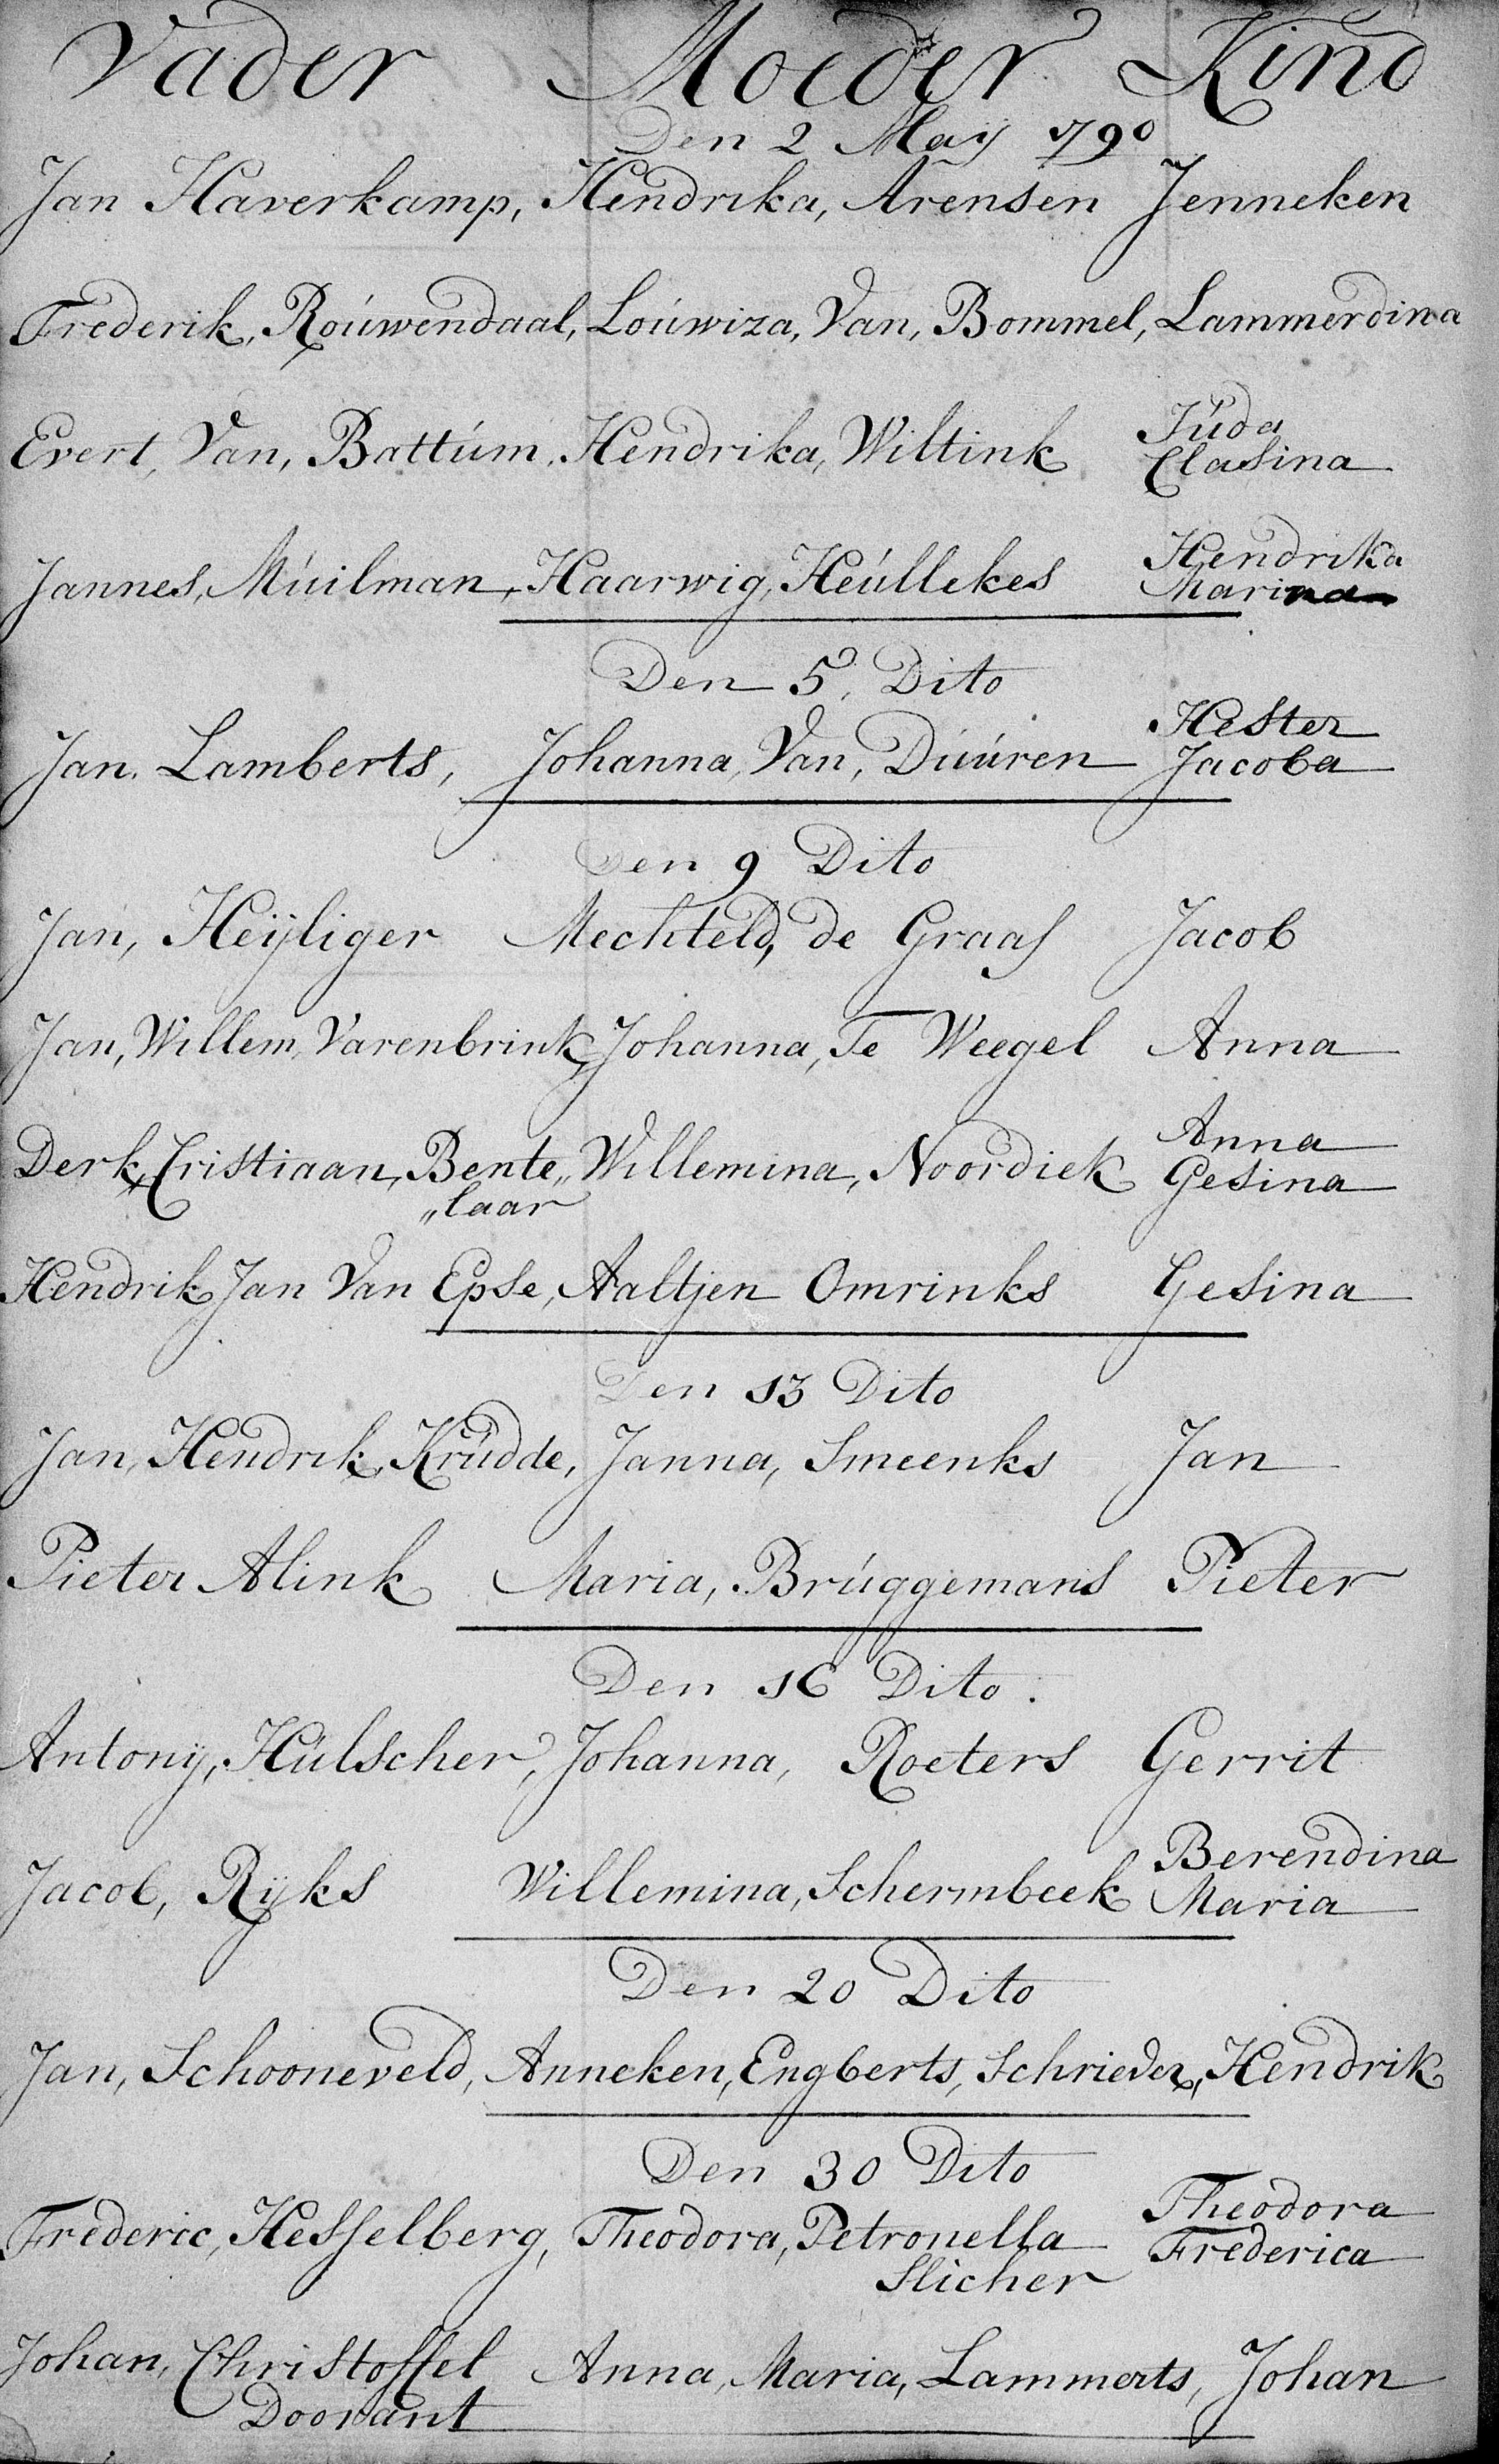 Vader Moeder Kind
Den 2 Maij 1790
Jan Haverkamp, Hendrika, Arensen Jenneken
Frederik, Roúwendaal, Loúwiza, Van, Bommel, Lammerdina
Evert, Van, Battúm, Hendrika, Wiltink Júda
Clasina
Jannes, Múilman, Haarwig, Heúllekes Hendrika
Marina
Den 5, Dito
Jan. Lamberts, Johanna, Van, Dúúren Hester
Jacoba
Den 9 Dito
Jan, Heijliger Mechteld, de Graaf Jacob
Jan, Willem, Varenbrink, Johanna, Te Weegel Anna
Derk, Cristiaan, Bente„ Willemina, Noordiek Anna
„laar Gesina
Hendrik Jan Van Epse, Aaltjen Omrinks Gesina
Den 13 Dito
Jan, Hendrik, Krúdde, Janna, Smeenks Jan
Pieter Alink Maria, Brúggemans Pieter
Den 16 Dito.
Antonij, Húlscher, Johanna, Roeters Gerrit
Jacob, Rijks Willemina, Schermbeek Berendina
Maria
Den 20 Dito
Jan, Schooneveld, Anneken, Engberts, Schrieder, Hendrik
Den 30 Dito
Frederic, Hesselberg, Theodora, Petronella Theodora
Slicher Frederica
Johan, Christoffel Anna, Maria, Lammerts, Johan
Doorant